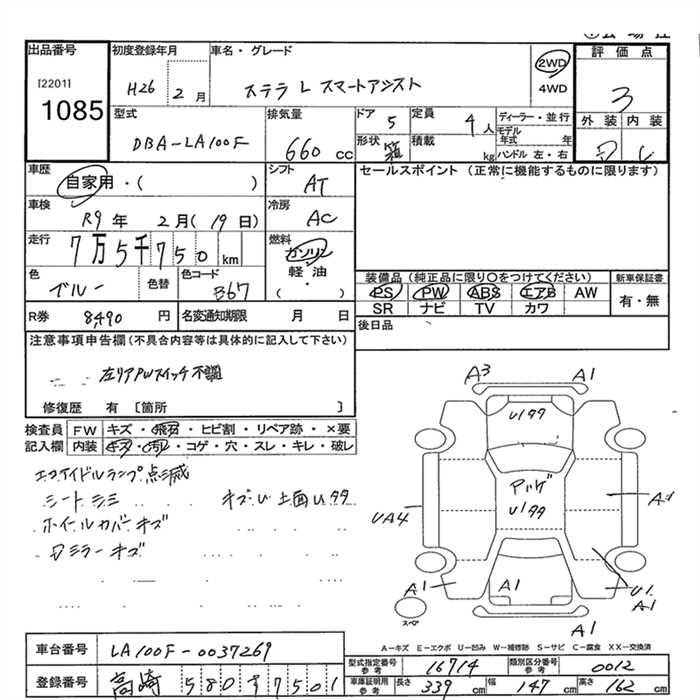 出品番号
[2201]
1085
初度登録年月
H26 2月
車名・グレード
ステラ L スマートアシスト
2WD
4WD
評価点
3
外装 内装
型式
DBA-LA100F
排気量
660 cc
ドア 5
定員 4人
形状 箱
積載 kg
ディーラー・並行
モデル年式 年
ハンドル 左・右
車歴
自家用・( )
シフト
AT
セールスポイント (正常に機能するものに限ります)
車検
R9年 2月(19日)
冷房
AC
走行
7万5千750km
燃料
ガソリン
軽・油
( )
色
ブルー
色替
色コード
B67
装備品(純正品に限り○をつけてください)
PS PW ABS エアB AW
SR ナビ TV カワ
新車保証書
有・無
R券 8490円
名変通知期限 月 日
後日品
注意事項申告欄(不具合内容等は具体的に記入して下さい)
左リアPWスイッチ不調
修復歴 有 〔箇所 〕
検査員記入欄
FW キズ・飛石・ヒビ割・リペア跡・×要
内装 キズ・汚レ・コゲ・穴・スレ・キレ・破レ
エコアイドルランプ点滅
シートシミ
ホイールカバーキズ
ミラーキズ
A3
A1
Uワワ
UA4
アツゲ
Uワワ
A1
A1
U1
A1
A1
スペア
A-キズ E-エクボ U-凹み W-補修跡 S-サビ C-腐食 XX-交換済
車台番号
LA100F-0037269
登録番号
高崎 580 7501
型式指定番号 参考
16714
類別区分番号 参考
0012
車庫証明用 参考
長さ 339cm
幅 147cm
高さ 162cm